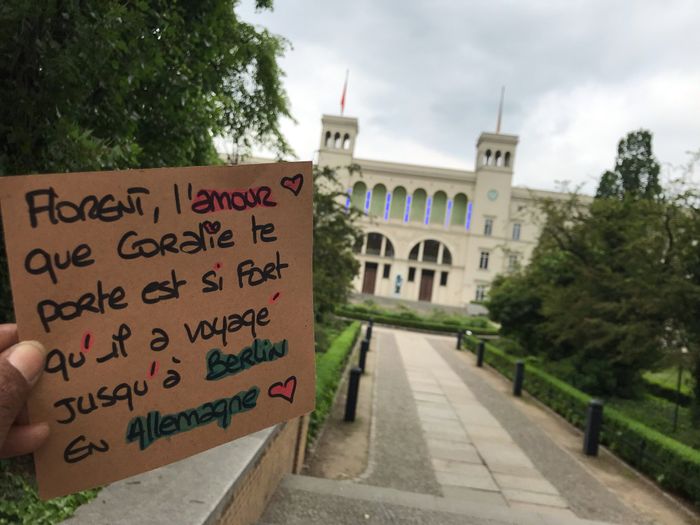 FLORENT, l'amour
que Coralie te
porte est si fort
qu'il a voyagé
jusqu'à Berlin
En Allemagne